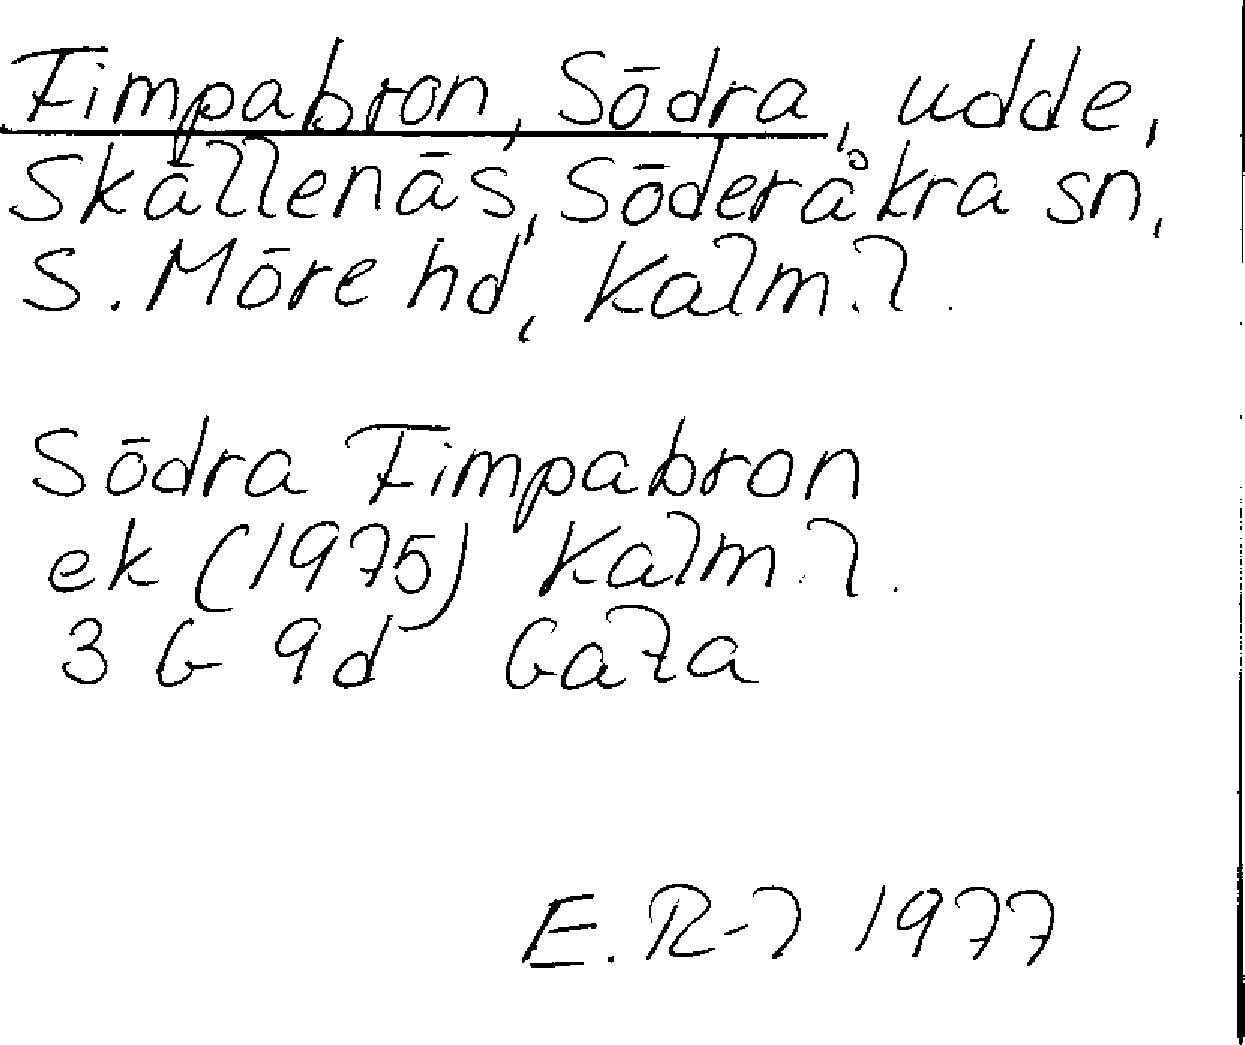 Fimpabron, Södra, udde,
Skällenäs, Söderåkra sn,
S. Möre hd, Kalm. l.
Södra Fimpabron
ek (1975) Kalm. l.
3 G 9d Gata
E. R-l 1977